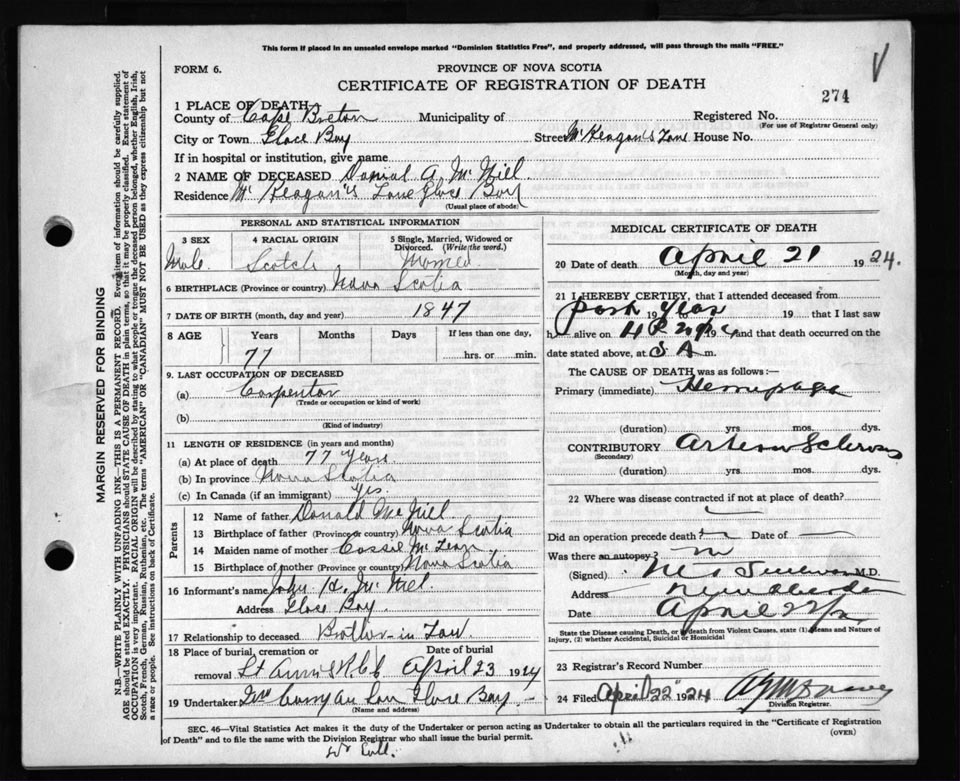 This form if placed in an unsealed envelope marked "Dominion Statistics Free", and properly addressed, will pass through the mails "FREE."
FORM 6.
PROVINCE OF NOVA SCOTIA
CERTIFICATE OF REGISTRATION OF DEATH
274
1 PLACE OF DEATH
County of Cape Breton Municipality of Registered No.
(For use of Registrar General only)
City or Town Glace Bay Street McKeagan's Lane House No.
If in hospital or institution, give name
2 NAME OF DECEASED Daniel A. McNeil
Residence McKeagan's Lane Glace Bay
(Usual place of abode)
PERSONAL AND STATISTICAL INFORMATION
3 SEX 4 RACIAL ORIGIN 5 Single, Married, Widowed or Divorced. (Write the word.)
Male Scotch Married
6 BIRTHPLACE (Province or country) Nova Scotia
7 DATE OF BIRTH (month, day and year) 1847
8 AGE Years Months Days If less than one day,
77 hrs. or min.
9. LAST OCCUPATION OF DECEASED
(a) Carpenter
(Trade or occupation or kind of work)
(b)
(Kind of industry)
11 LENGTH OF RESIDENCE (in years and months)
(a) At place of death 77 years
(b) In province Nova Scotia
(c) In Canada (if an immigrant) Yes
Parents
12 Name of father Donald McNeil
13 Birthplace of father (Province or country) Nova Scotia
14 Maiden name of mother Cassie McLean
15 Birthplace of mother (Province or country) Nova Scotia
16 Informant's name John H. McNeil
Address Glace Bay
17 Relationship to deceased Brother-in Law
18 Place of burial, cremation or
removal St Ann's April 23 1924
19 Undertaker Glace Bay
(Name and address)
MEDICAL CERTIFICATE OF DEATH
20 Date of death April 21 1924.
(Month, day and year)
21 I HEREBY CERTIFY, that I attended deceased from
past 19 year 19 that I last saw
h alive on 19 and that death occurred on
date stated above, at 5 A m.
The CAUSE OF DEATH was as follows:—
Primary (immediate)
(duration) yrs. mos. dys.
CONTRIBUTORY
(Secondary)
(duration) yrs. mos. dys.
22 Where was disease contracted if not at place of death?
Did an operation precede death? Date of
Was there an autopsy? no
(Signed) M.D.
Address
Date April 22
State the Disease causing Death, or if death from Violent Causes, state (1) Means and Nature of
Injury, (2) whether Accidental, Suicidal or Homicidal
23 Registrar's Record Number
24 Filed April 22" 1924
Division Registrar.
SEC. 46—Vital Statistics Act makes it the duty of the Undertaker or person acting as Undertaker to obtain all the particulars required in the "Certificate of Registration
of Death" and to file the same with the Division Registrar who shall issue the burial permit.
(OVER)
MARGIN RESERVED FOR BINDING
N.B.—WRITE PLAINLY WITH UNFADING INK—THIS IS A PERMANENT RECORD. Every item of information should be carefully supplied.
AGE should be stated EXACTLY. PHYSICIANS should STATE CAUSE OF DEATH in plain terms, so that it may be properly classified. Exact statement of
OCCUPATION is very important. RACIAL ORIGIN will be described by stating to what people or tongue the deceased person belonged, whether English, Irish,
Scotch, French, German, Russian, Ruthenian, etc. The terms "AMERICAN" or "CANADIAN" MUST NOT BE USED as they express citizenship but not
a race or people. See instructions on back of Certificate.